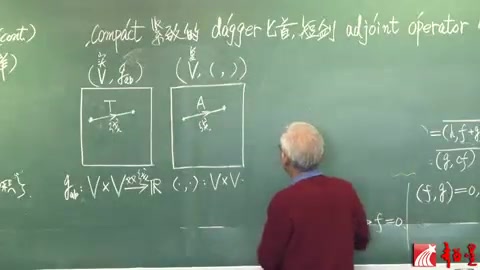 (cont)
compact 紧致的 dagger 匕首,短剑 adjoint operator
实 复
(V, g_ab) (V, ( , ))
T A
线 线
g_ab : V×V 双线性→ ℝ (·,·) : V×V
=(h, f+g
=(g, cf)
(f, g)=0,
f=0